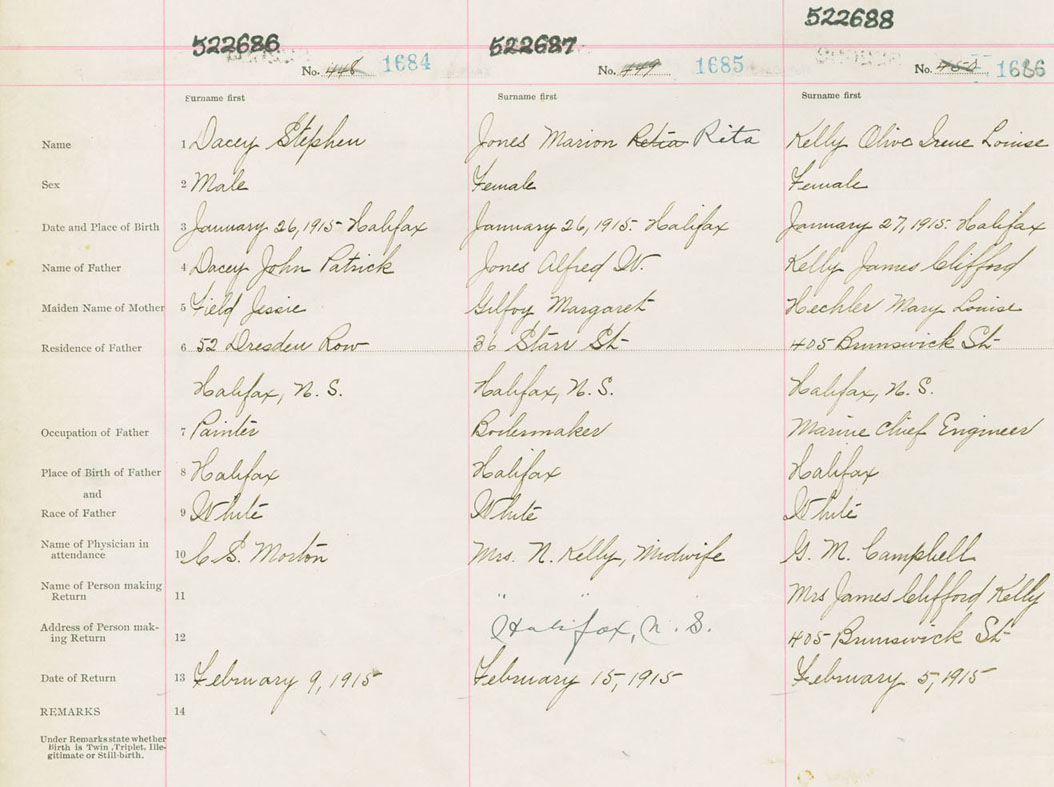 522686 522687 522688
No. 448 1684 No. 449 1685 No. 450 1686
Surname first Surname first Surname first
Name 1 Dacey Stephen Jones Marion Retia Rita Kelly Olive Irene Louise
Sex 2 Male Female Female
Date and Place of Birth 3 January 26, 1915- Halifax January 26, 1915. Halifax January 27, 1915. Halifax
Name of Father 4 Dacey John Patrick Jones Alfred W. Kelly James Clifford
Maiden Name of Mother 5 Field Jessie Gilfoy Margaret Hechler Mary Louise
Residence of Father 6 52 Dresden Row 36 Starr St 405 Brunswick St
Halifax, N. S. Halifax, N. S. Halifax, N. S.
Occupation of Father 7 Painter Boilermaker Marine Chief Engineer
Place of Birth of Father 8 Halifax Halifax Halifax
and
Race of Father 9 White White White
Name of Physician in
attendance 10 C S. Morton Mrs. N. Kelly, Midwife G. M. Campbell
Name of Person making
Return 11 " " Mrs James Clifford Kelly
Address of Person mak-
ing Return 12 Halifax, N. S. 405 Brunswick St
Date of Return 13 February 9, 1915 February 15, 1915 February 5, 1915
REMARKS 14
Under Remarks state whether
Birth is Twin, Triplet, Ille-
gitimate or Still-birth.